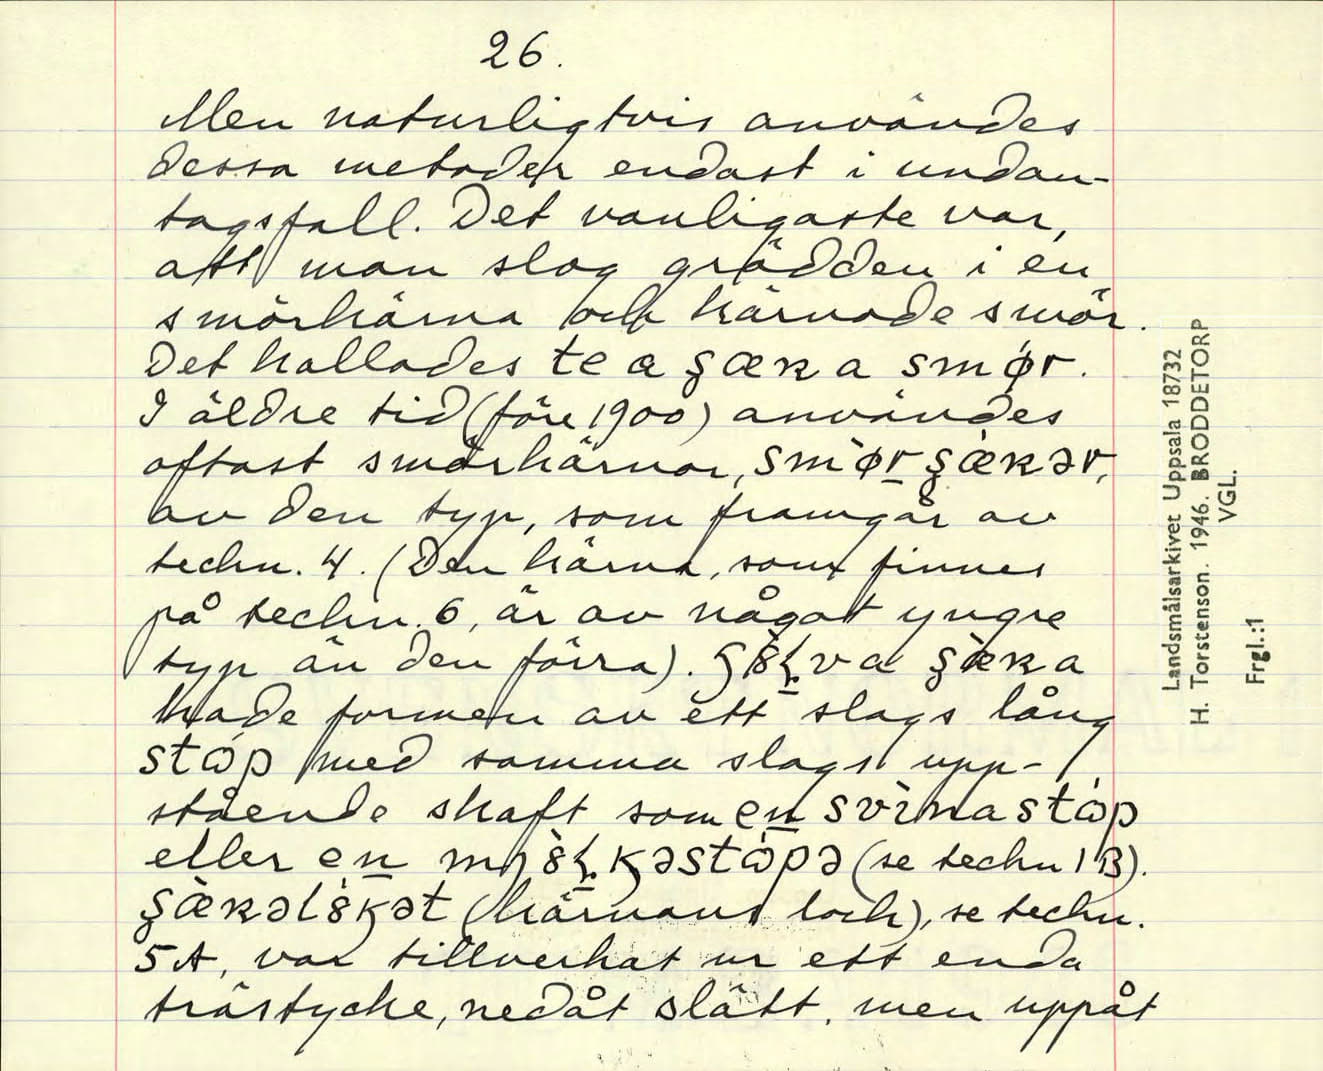 26.
Men naturligtvis användes
dessa metoder endast i undan-
tagsfall. Det vanligaste var,
att man slog grädden i en
smörkärna och kärnade smör.
Det kallades te a ʂæʀa smǿr.
I äldre tid (före 1900) användes
oftast smörkärnor, smø̀r ʂæ̀ʀər,
av den typ, som framgår av
techn. 4. (Den kärna, som finnes
på techn. 6, är av något yngre
typ än den förra). va ʂæ̀ʀa
hade formen av ett slags lång
med samma slags upp-
stående skaft som en
eller en (se techn 1 B).
(kärnans lock), se techn.
5A, var tillverkat ur ett enda
trästycke, nedåt slätt, men uppåt
Landsmålsarkivet Uppsala 18732
H. Torstenson. 1946. BRODDETORP
VGL.
Frgl.:1